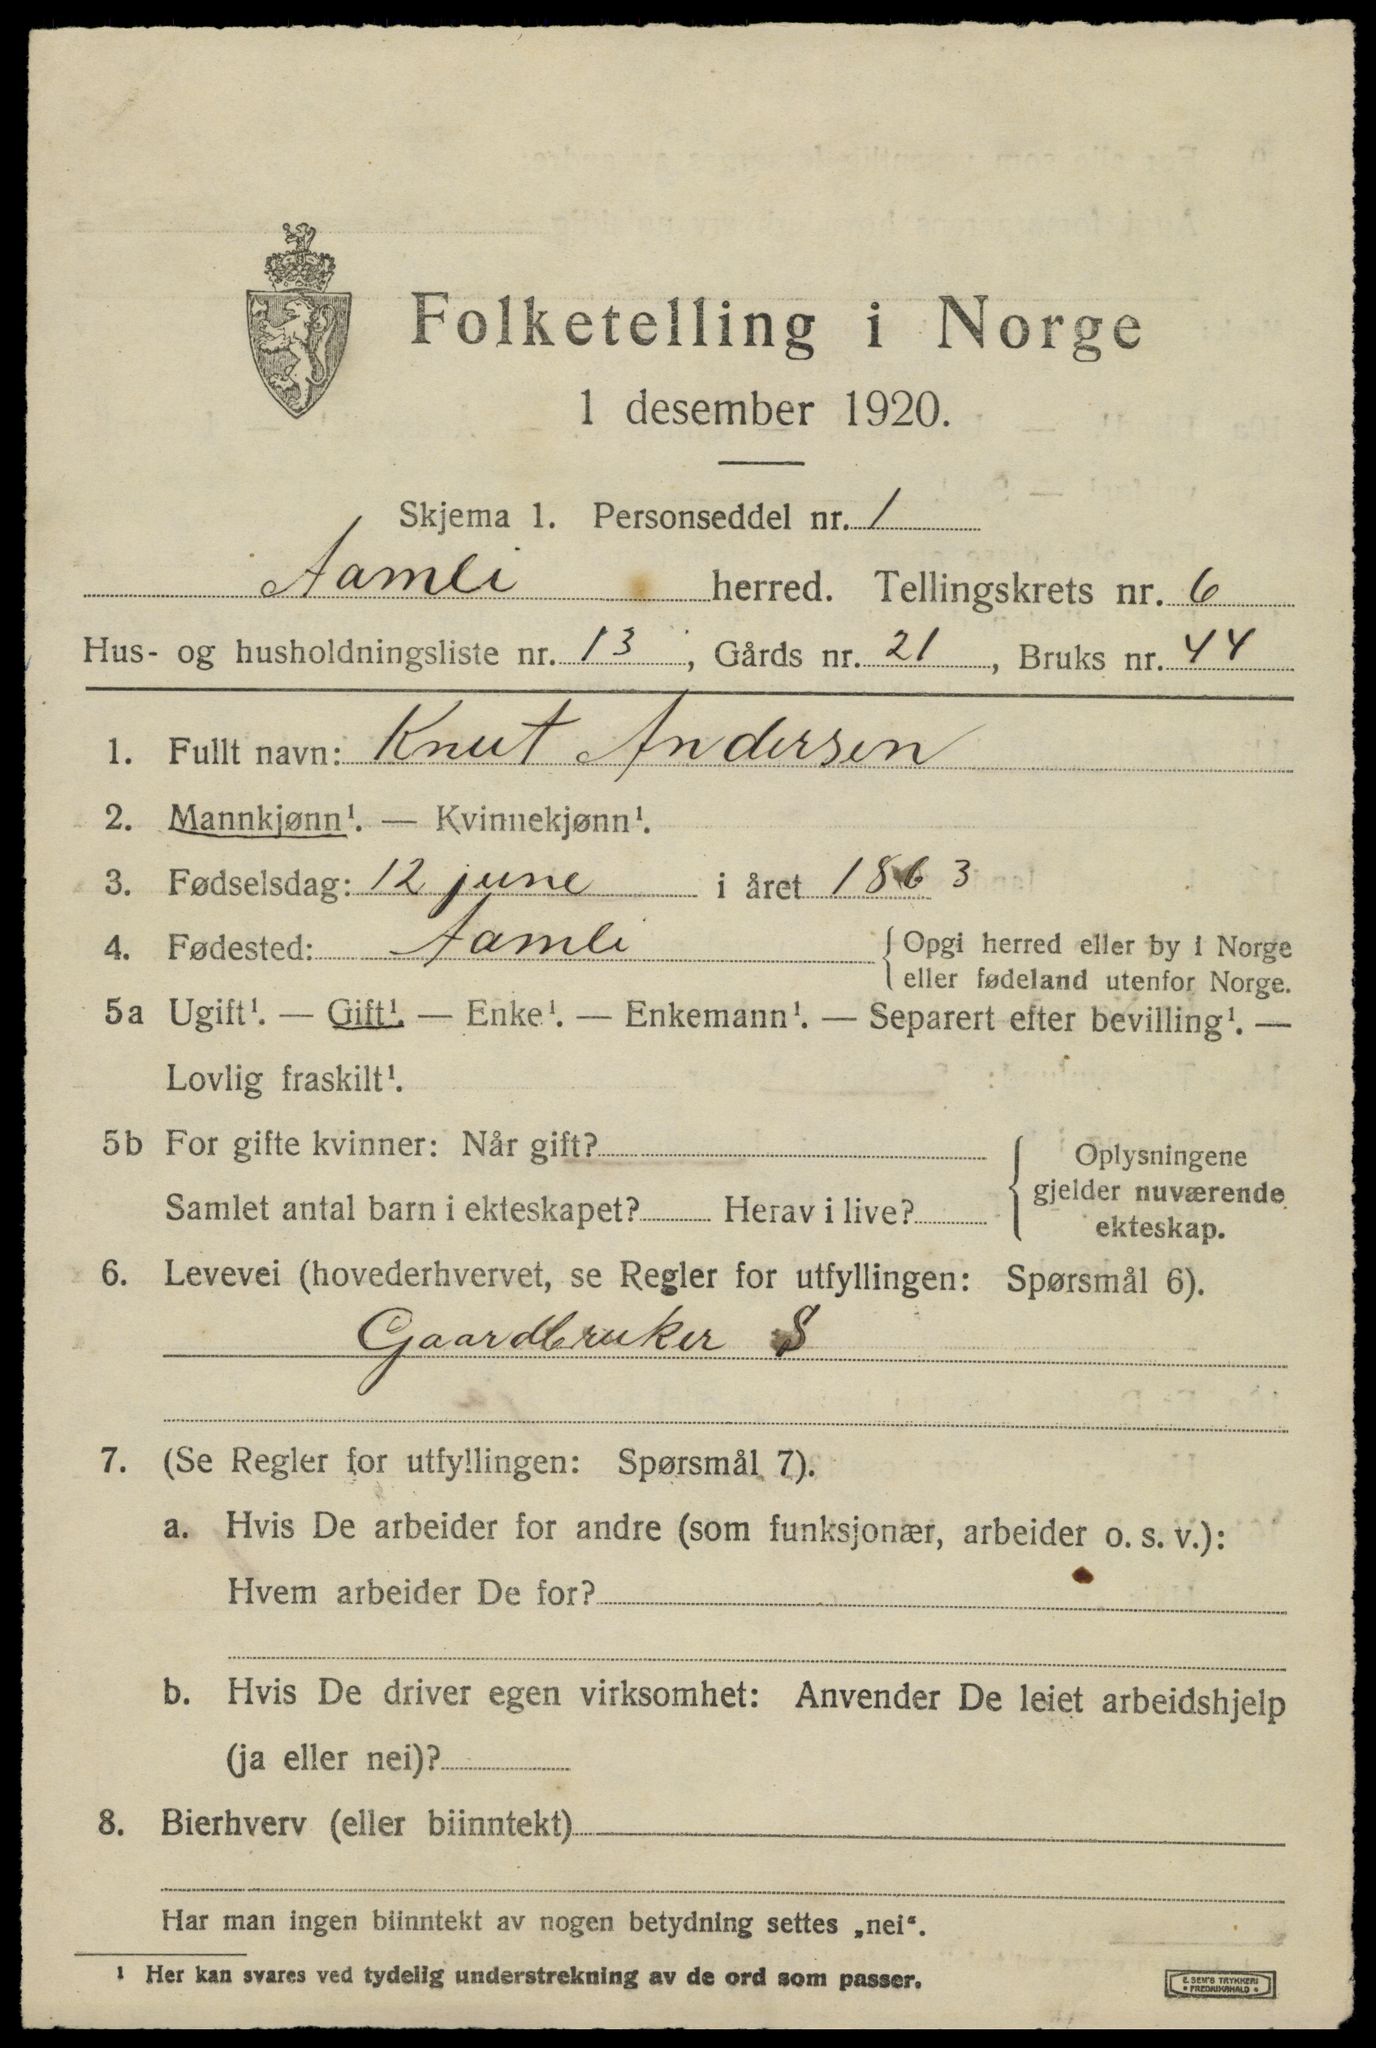 Folketelling i Norge
1 desember 1920.
Skjema 1. Personseddel nr. 1
Aamli herred. Tellingskrets nr. 6
Hus- og husholdningsliste nr. 13, Gårds nr. 21, Bruks nr. 44
1. Fullt navn: Knut Andersen
2. Mannkjønn¹. — Kvinnekjønn¹.
3. Fødselsdag: 12 june i året 1863
4. Fødested: Aamli { Opgi herred eller by i Norge
eller fødeland utenfor Norge.
5a Ugift¹. — Gift¹. — Enke¹. — Enkemann¹. — Separert efter bevilling¹. —
Lovlig fraskilt¹.
5b For gifte kvinner: Når gift? { Oplysningene
gjelder nuværende
Samlet antal barn i ekteskapet? Herav i live?
ekteskap.
6. Levevei (hovederhvervet, se Regler for utfyllingen: Spørsmål 6).
Gaardbruker S
7. (Se Regler for utfyllingen: Spørsmål 7).
a. Hvis De arbeider for andre (som funksjonær, arbeider o. s. v.):
Hvem arbeider De for?
b. Hvis De driver egen virksomhet: Anvender De leiet arbeidshjelp
(ja eller nei)?
8. Bierhverv (eller biinntekt)
Har man ingen biinntekt av nogen betydning settes „nei“.
¹ Her kan svares ved tydelig understrekning av de ord som passer.
E. SEM'S TRYKKERI
FREDRIKSHALD